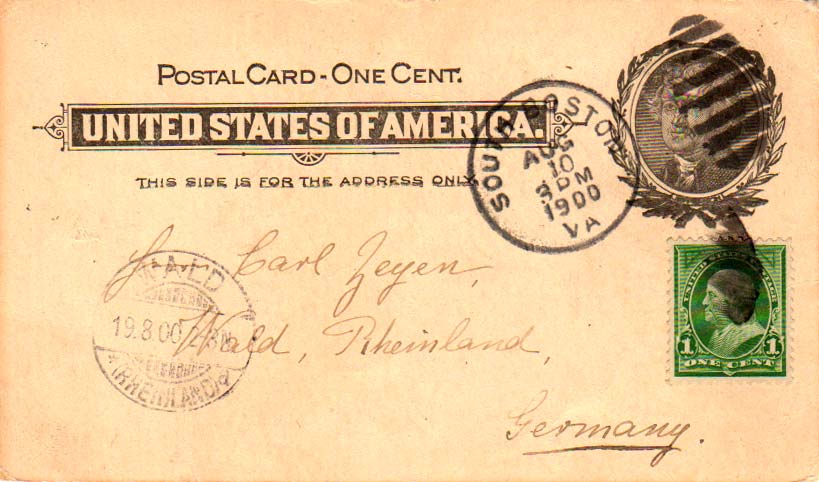 POSTAL CARD - ONE CENT.
UNITED STATES OF AMERICA.
THIS SIDE IS FOR THE ADDRESS ONLY.
SOUTH BOSTON
AUG
10
3 PM
1900
VA
Carl Zeyen,
Wald, Rheinland,
Germany.
WALD
19.8.00
(RHEINLAND)
UNITED STATES POSTAGE
1 1
ONE CENT